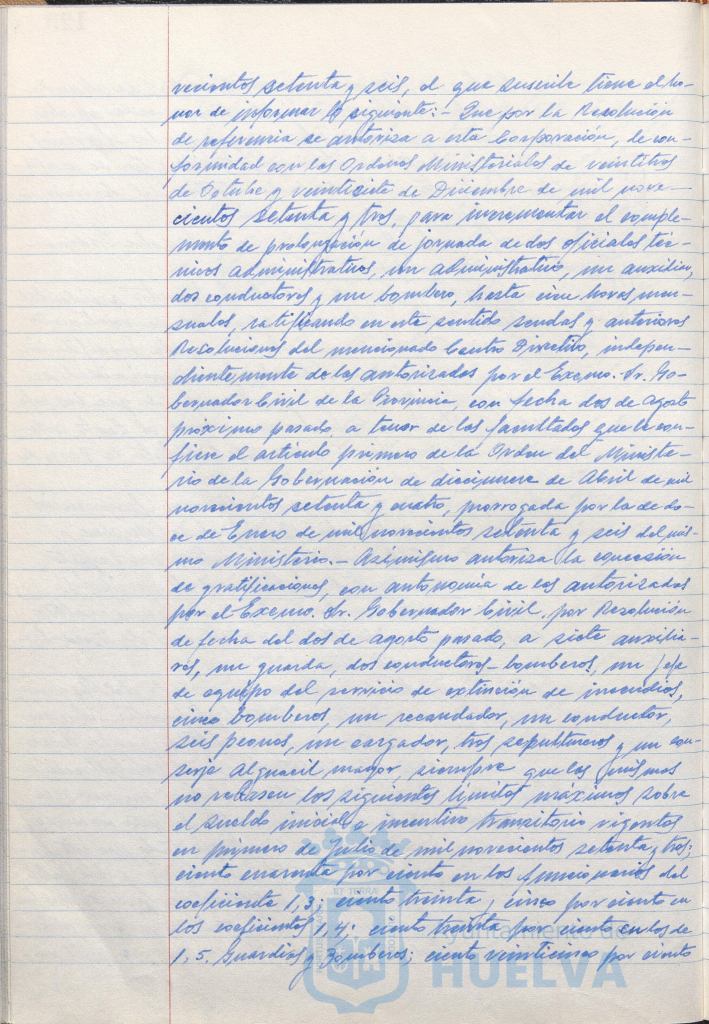 vecientos setenta y seis, el que suscribe tiene el ho-
nor de informar lo siguiente:- Que por la Resolución
de referencia se autoriza a esta Corporación, de con-
formidad con las Ordenes Ministeriales de veintitres
de Octubre y veintisiete de Diciembre de mil nove-
cientos setenta y tres, para incrementar el comple-
mento de prolongación de jornada de dos oficiales téc-
nicos administrativos, un administrativo, un auxiliar,
dos conductores y un bombero, hasta cien horas men-
suales, ratificando en este sentido sendas y anteriores
Resoluciones del mencionado Centro Directivo, indepen-
dientemente de las autorizadas por el Excmo. Sr. Go-
bernador Civil de la Provincia, con fecha dos de Agosto
próximo pasado, a tenor de las facultades que le con-
fiere el artículo primero de la Orden del Ministe-
rio de la Gobernación de diecinueve de Abril de mil
novecientos setenta y cuatro, prorrogada por la de do-
ce de Enero de mil novecientos setenta y seis del mis-
mo Ministerio.- Asimismo autoriza la concesión
de gratificaciones, con autonomía de las autorizadas
por el Excmo. Sr. Gobernador Civil, por Resolución
de fecha del dos de agosto pasado, a siete auxilia-
res, un guarda, dos conductores-bomberos, un jefe
de equipo del servicio de extinción de incendios,
cinco bomberos, un recaudador, un conductor,
seis peones, un cargador, tres sepultureros y un con-
serje Alguacil mayor, siempre que las mismas
no rebasen los siguientes límites máximos sobre
el sueldo inicial e incentivo transitorio vigentes
en primero de julio de mil novecientos setenta y tres;
ciento cuarenta por ciento en los funcionarios del
coeficiente 1,3; ciento treinta y cinco por ciento en
los coeficientes 1,4; ciento treinta por ciento en los de
1,5. Guardias y Bomberos; ciento veinticinco por ciento
Ayuntamiento de
HUELVA